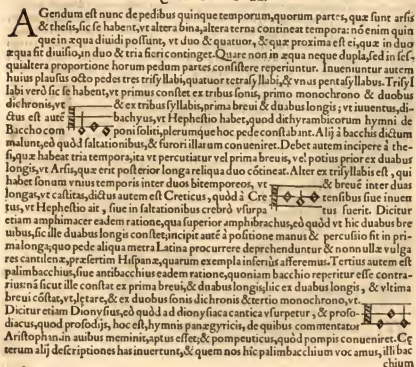 AGendum est nunc de pedibus quinque temporum, quorum partes, quæ sunt arsis
& thesis, sic se habent, vt altera bina, altera terna contineat tempora: nō enim quin
que in æqua diuidi possunt, vt duo & quatuor, & quæ proxima est ei, quæ in duo
æqua fit diuisio, in duo & tria fieri continget. Quare non in æqua neque dupla, sed in ses-
quialtera proportione horum pedum partes consistere reperiuntur. Inueniuntur autem
huius plausus octo pedes tres trisyllabi, quatuor tetrasyllabi, & vnus pentasyllabus. Trisyl
labi verò sic se habent, vt primus constet ex tribus sonis, primo monochrono & duobus
dichronis, vt & ex tribus syllabis, prima breui & duabus longis; vt iuuentus, di-
ctus est autē bachyus, vt Hephestio habet, quod dithyramborum hymni de
Bacchocom positi soliti, plerumque hoc pede constabant. Alij à bacchis dictum
malunt, ed quòd saltationibus, & furori illarum conueniret. Debet autem incipere à the-
si, quæ habeat tria tempora, ita vt percutiatur vel prima breuis, vel potius prior ex duabus
longis, vt Arsis, quæ erit posterior longa reliqua duo cōtineat. Alter ex trisyllabis est, qui
habet sonum vnius temporis inter duos bitemporeos, vt & breuē inter duas
longas, vt castitas, dictus autem est Creticus, quòd à Cre tensibus siue inuen
tus, vt Hephestio ait, siue in saltationibus crebrò vsurpa tus fuerit. Dicitur
etiam amphimacer eadem ratione, qua superior amphibrachus, eò quòd vt hic duabus bre
uibus, sic ille duabus longis constet; incipit autē à positione manus & percussio fit in pri-
ma longa; quo pede aliqua metra Latina procurrere deprehenduntur & non nullæ vulga
res cantilenæ, præsertim Hispanæ, quarum exempla inferiùs afferemus. Tertius autem est
palimbacchius, siue antibacchius eadem ratione, quoniam bacchio reperitur esse contra-
rius: nā sicut ille constat ex prima breui, & duabus longis, hic ex duabus longis, & vltima
breui cōstat, vt, lętare, & ex duobus sonis dichronis & tertio monochrono, vt.
Dicitur etiam Dionysius, eò quòd ad dionysiaca cantica vsurpetur, & proso-
diacus, quod prosodijs, hoc est, hymnis panægyricis, de quibus commentator
Aristophan. in auibus meminit, aptus esset; & pompeuticus, quòd pompis conueniret. Cę
terum alij descriptiones has inuertunt, & quem nos hic palimbacchium vocamus, illi bac
chium